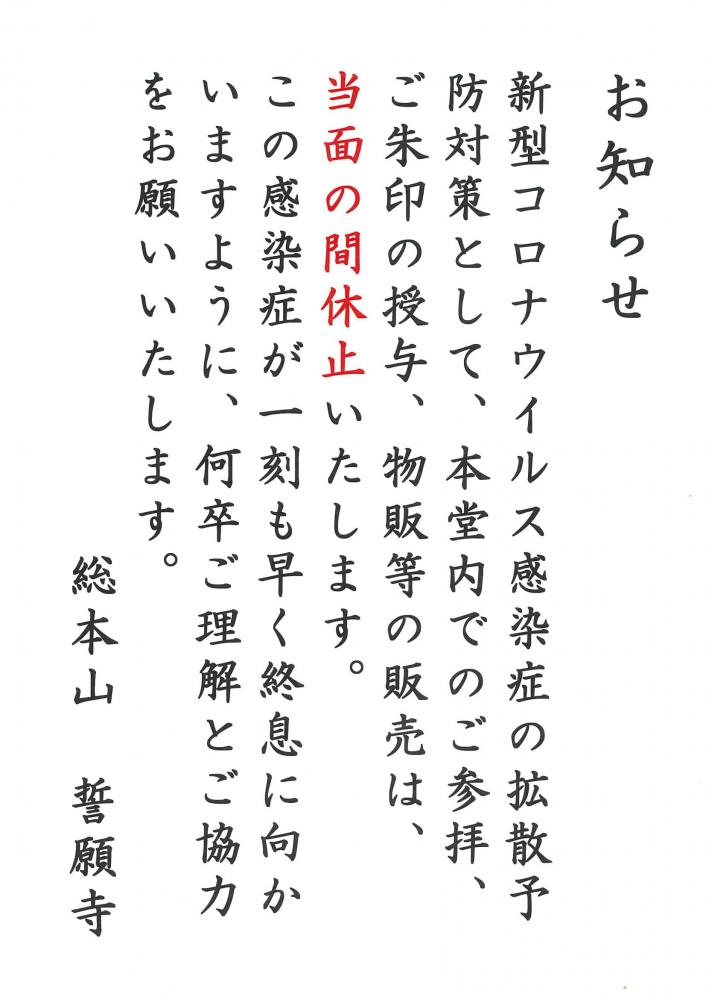 お知らせ
新型コロナウイルス感染症の拡散予
防対策として、本堂内でのご参拝、
ご朱印の授与、物販等の販売は、
当面の間休止いたします。
この感染症が一刻も早く終息に向か
いますように、何卒ご理解とご協力
をお願いいたします。
総本山　誓願寺